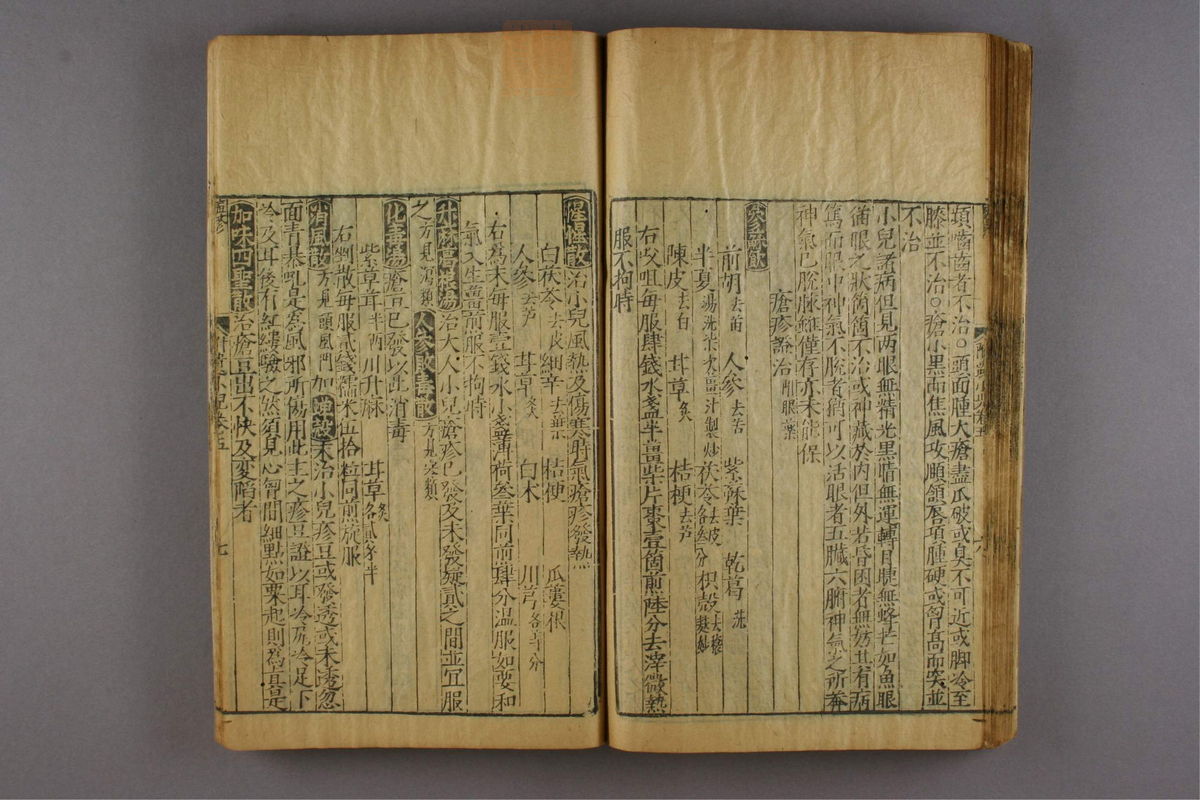 項嚙齒者不治○頭面腫大瘡盡爪破或臭不可近或脚冷至
膝並不治○瘡小黑而焦風攻頤頷唇項腫硬或胷高而突並
不治
小兒諸病但見兩眼無精光黑睛無運轉目睫無鋒芒如魚眼
猫眼之狀 不治或神藏於內但外若昏困者無妨其有病
篤而眼中神氣不脫者尚可以活眼者五臟六腑神氣之所
神氣已脫脉雖僅存亦未能保
瘡疹證治 眼藥
參蘇飲
前胡去苗 人參去苦 紫蘇葉 乾葛洗
半夏湯洗柒次薑汁製炒 茯苓去皮各叁分 枳殼去穰麩炒
陳皮去白 甘草炙 桔梗去芦
右㕮咀每服肆錢水盞半薑柒片棗壹箇煎陸分去滓微熱
服不拘時
惺惺散治小兒風熱及傷寒時氣瘡疹發熱
白茯苓去皮 細辛去葉 桔梗 瓜蔞根
人參去芦 甘草炙 白术 川芎各等分
右為末每服壹錢水小盞薄荷叁葉同煎肆分溫服如要和
氣入生薑煎服不拘時
升麻葛根湯治大人小兒瘡疹已發及未發疑貳之間並宜服
之方見瀉類 人參敗毒散方見類
化毒湯瘡豆已發以此消毒
紫草茸半兩川升麻 甘草炙各貳錢半
右剉散每服貳錢糯米伍拾粒同煎旋服
消風散方見頭風門加蟬殼末治小兒疹豆或發透或未透忽
面青 是為風邪所傷用此主之疹豆證以耳冷尻冷足下
冷及耳後有紅縷驗之然須見心胷間細點如粟起則為真是
加味四聖散治瘡豆出不快及變陷者
七